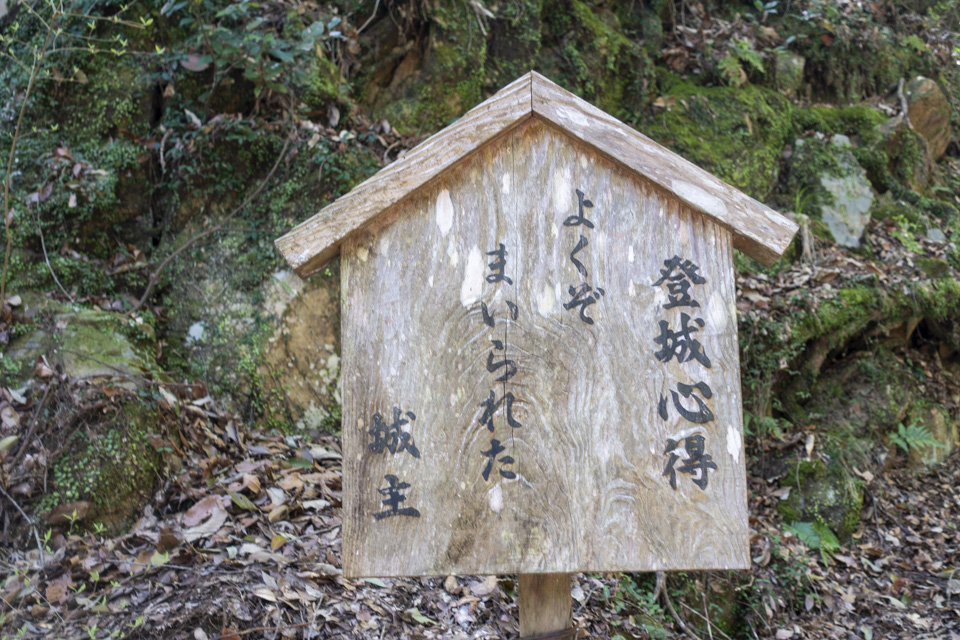 登城心得
よくぞ
まいられた
城主